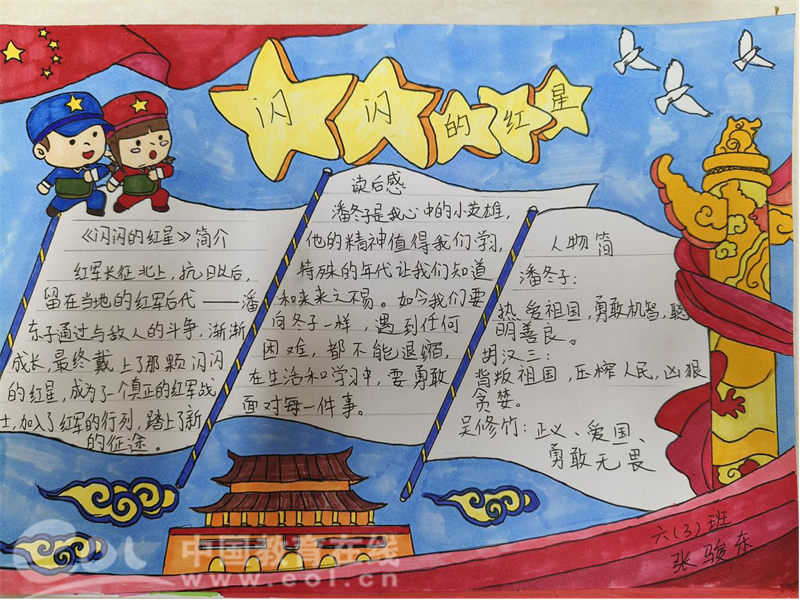 闪闪的红星
《闪闪的红星》简介
红军长征北上,抗日以后,
留在当地的红军后代——潘
东子通过与敌人的斗争,渐渐
成长,最终戴上了那颗闪闪
的红星,成为了一个真正的红军战
士,加入了红军的行列,踏上了新
的征途。
读后感
潘冬子是我心中的小英雄,
他的精神值得我们学习,
特殊的年代让我们知道
和来来之不易。如今我们要
向冬子一样,遇到任何
困难,都不能退缩,
在生活和学习中,要勇敢
面对每一件事。
人物简
潘冬子:
热爱祖国,勇敢机智,聪
明善良。
胡汉三:
背叛祖国,压榨人民,凶狠
贪婪。
吴修竹:正义、爱国、
勇敢无畏
六(3)班
张骏东
中国教育在线
www.eol.cn